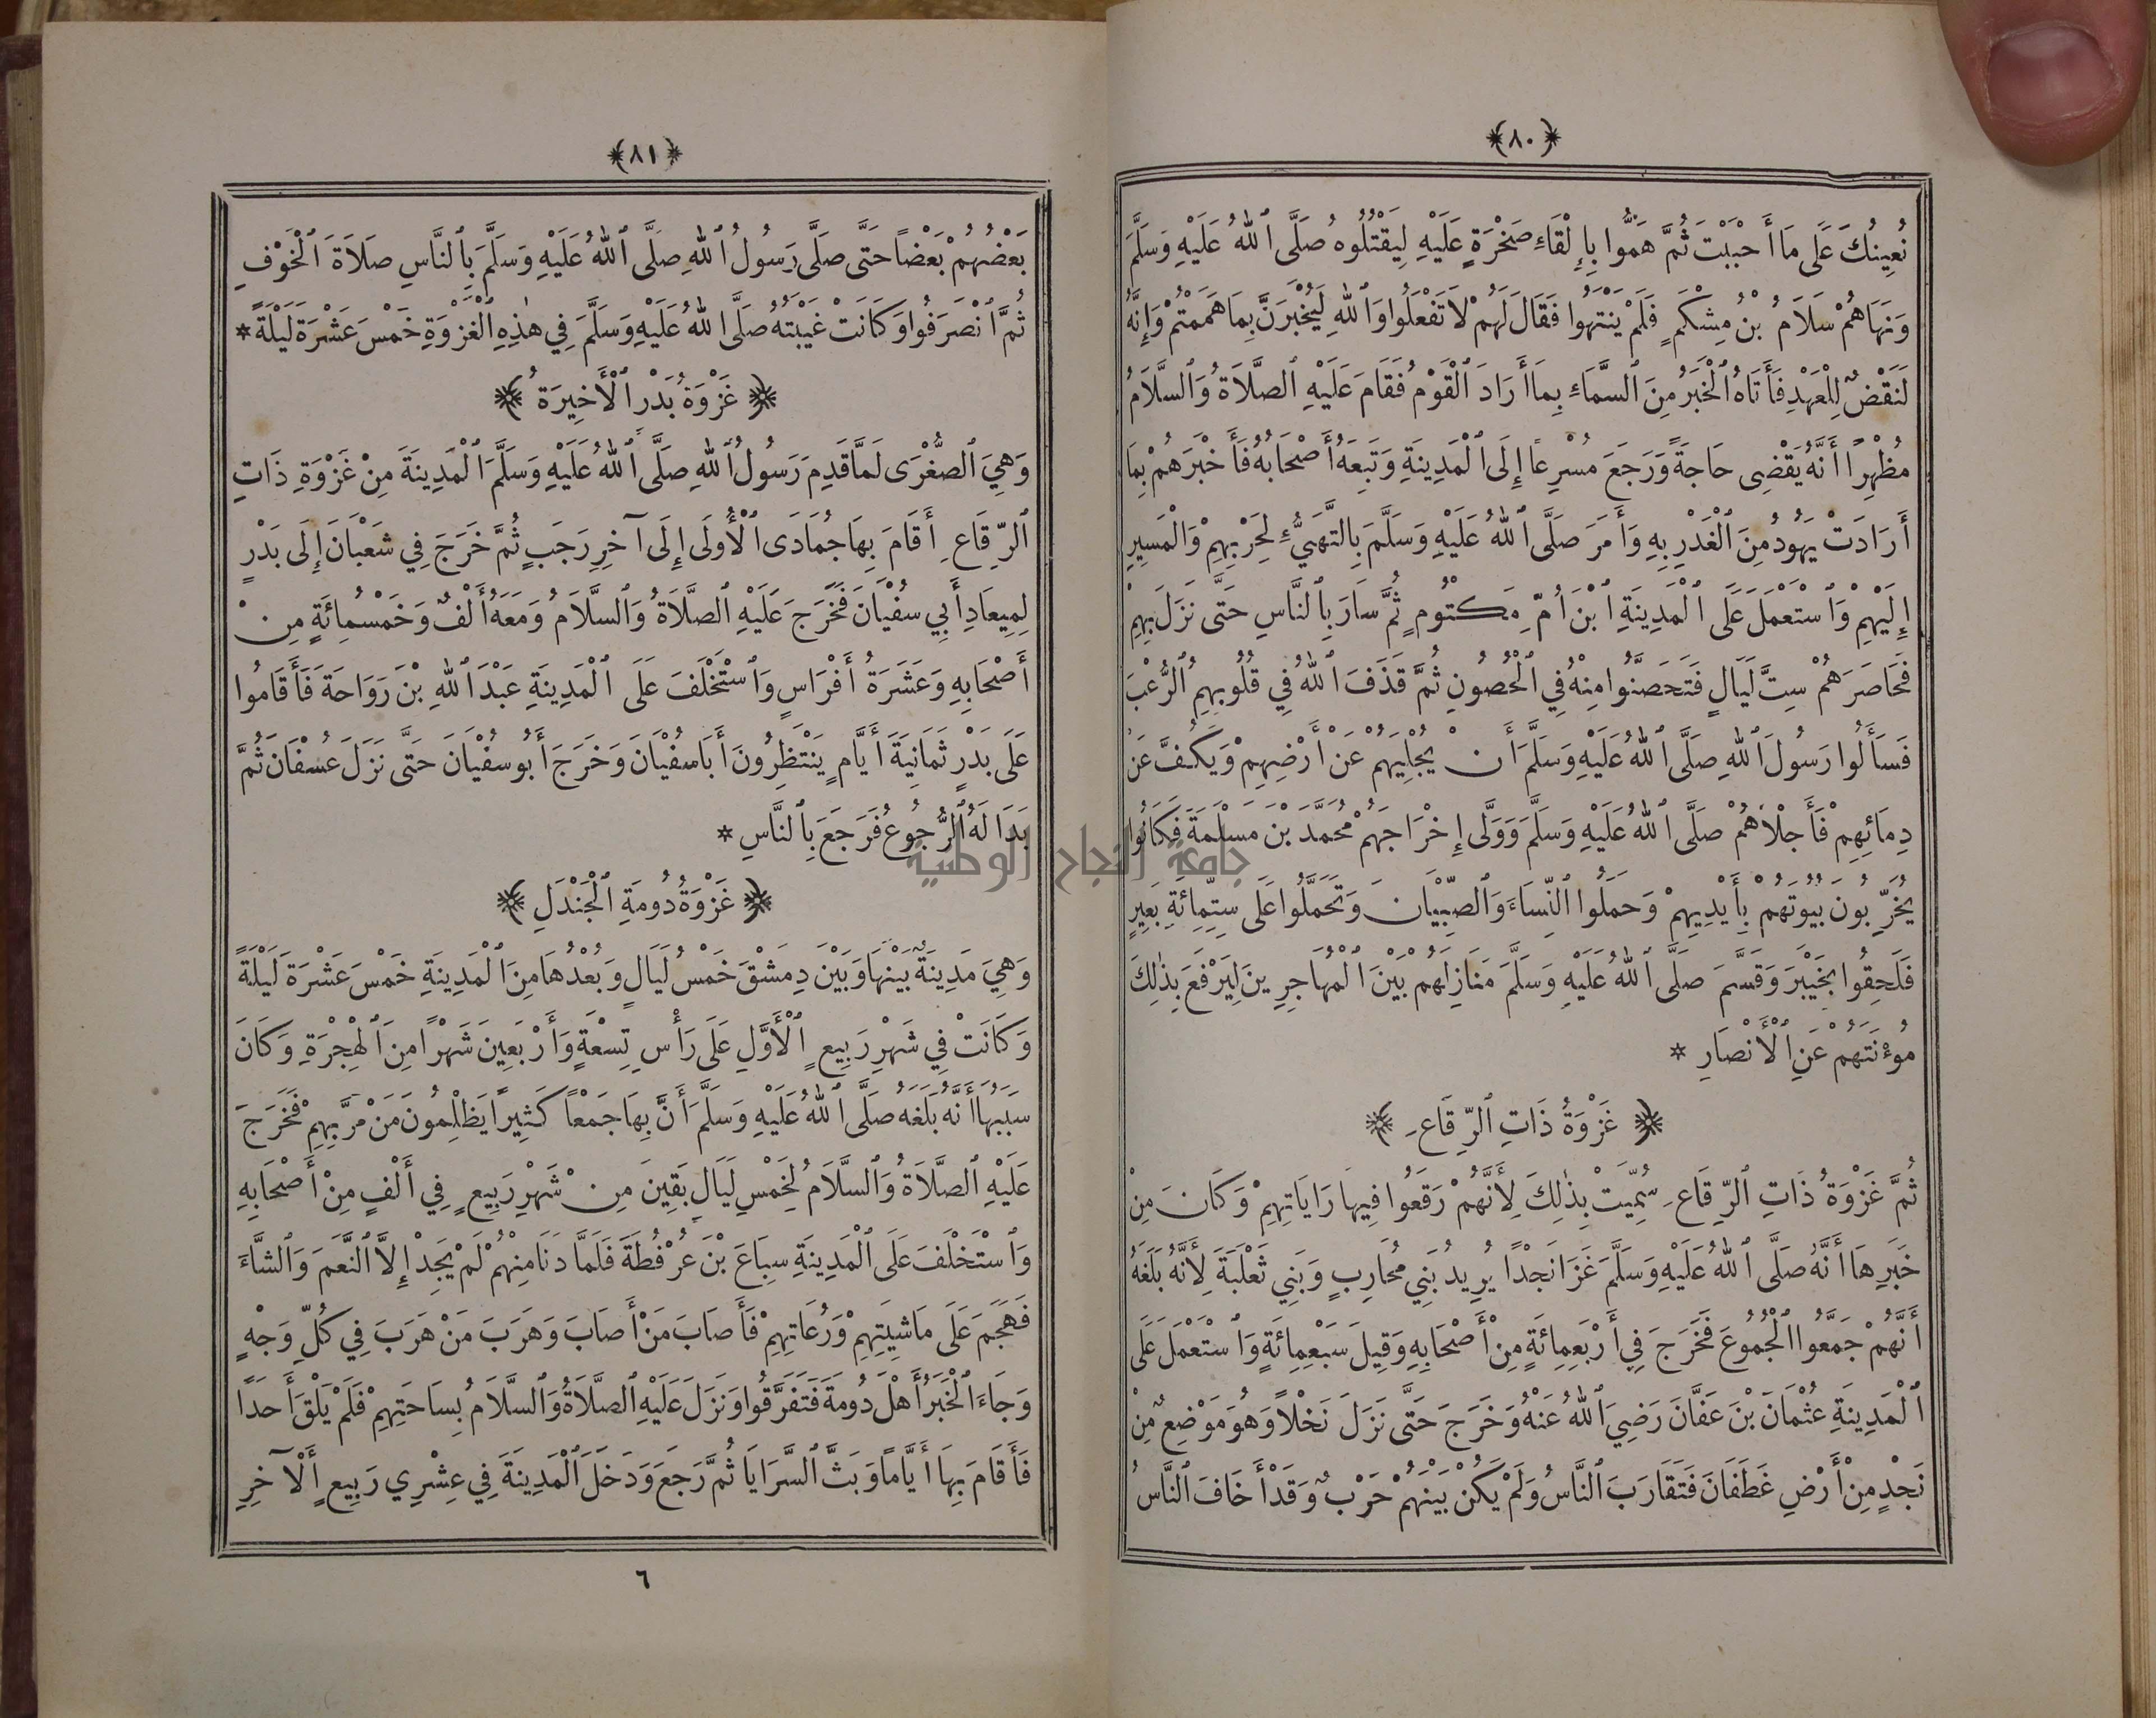 ﴿٨٠﴾
نُعِينُكَ عَلَى مَا أَحْبَبْتَ ثُمَّ هَمُّوا بِإِلْقَاءِ صَخْرَةٍ عَلَيْهِ لِيَقْتُلُوهُ صَلَّى ٱللهُ عَلَيْهِ وَسَلَّمَ
وَنَهَاهُمْ سَلَامُ بْنُ مِشْكَمٍ فَلَمْ يَنْتَهُوا فَقَالَ لَهُمْ لَا تَفْعَلُوا وَٱللهِ لَيُخْبَرَنَّ بِمَا هَمَمْتُمْ وَإِنَّهُ
لَنَقْضٌ لِلْعَهْدِ فَأَتَاهُ ٱلْخَبَرُ مِنَ ٱلسَّمَاءِ بِمَا أَرَادَ ٱلْقَوْمُ فَقَامَ عَلَيْهِ ٱلصَّلَاةُ وَٱلسَّلَامُ
مُظْهِرًا أَنَّهُ يَقْضِى حَاجَةً وَرَجَعَ مُسْرِعًا إِلَى ٱلْمَدِينَةِ وَتَبِعَهُ أَصْحَابُهُ فَأَخْبَرَهُمْ بِمَا
أَرَادَتْ يَهُودُ مِنَ ٱلْغَدْرِ بِهِ وَأَمَرَ صَلَّى ٱللهُ عَلَيْهِ وَسَلَّمَ بِالتَّهَيُّءِ لِحَرْبِهِمْ وَٱلْمَسِيرِ
إِلَيْهِمْ وَٱسْتَعْمَلَ عَلَى ٱلْمَدِينَةِ ٱبْنَ أُمِّ مَكْتُومٍ ثُمَّ سَارَ بِٱلنَّاسِ حَتَّى نَزَلَ بِهِمْ
فَحَاصَرَهُمْ سِتَّ لَيَالٍ فَتَحَصَّنُوا مِنْهُ فِي ٱلْحُصُونِ ثُمَّ قَذَفَ ٱللهُ فِي قُلُوبِهِمُ ٱلرُّعْبَ
فَسَأَلُوا رَسُولَ ٱللهِ صَلَّى ٱللهُ عَلَيْهِ وَسَلَّمَ أَنْ يُجْلِيَهُمْ عَنْ أَرْضِهِمْ وَيَكُفَّ عَنْ
دِمَائِهِمْ فَأَجْلَاهُمْ صَلَّى ٱللهُ عَلَيْهِ وَسَلَّمَ وَوَلَّى إِخْرَاجَهُمْ مُحَمَّدَ بْنَ مَسْلَمَةَ فَكَانُوا
يُخَرِّبُونَ بُيُوتَهُمْ بِأَيْدِيهِمْ وَحَمَلُوا ٱلنِّسَاءَ وَٱلصِّبْيَانَ وَتَحَمَّلُوا عَلَى سِتِّمِائَةِ بَعِيرٍ
فَلَحِقُوا بِخَيْبَرَ وَقَسَّمَ صَلَّى ٱللهُ عَلَيْهِ وَسَلَّمَ مَنَازِلَهُمْ بَيْنَ ٱلْمُهَاجِرِينَ لِيَرْفَعَ بِذٰلِكَ
مُوءْنَتَهُمْ عَنِ ٱلْأَنْصَارِ *
﴿ غَزْوَةُ ذَاتِ ٱلرِّقَاعِ ﴾
ثُمَّ غَزْوَةُ ذَاتِ ٱلرِّقَاعِ سُمِّيَتْ بِذٰلِكَ لِأَنَّهُمْ رَقَعُوا فِيهَا رَايَاتِهِمْ وَكَانَ مِنْ
خَبَرِهَا أَنَّهُ صَلَّى ٱللهُ عَلَيْهِ وَسَلَّمَ غَزَا نَجْدًا يُرِيدُ بَنِي مُحَارِبٍ وَبَنِي ثَعْلَبَةَ لِأَنَّهُ بَلَغَهُ
أَنَّهُمْ جَمَّعُوا ٱلْجُمُوعَ فَخَرَجَ فِي أَرْبَعِمِائَةٍ مِنْ أَصْحَابِهِ وَقِيلَ سَبْعِمِائَةٍ وَٱسْتَعْمَلَ عَلَى
ٱلْمَدِينَةِ عُثْمَانَ بْنَ عَفَّانَ رَضِيَ ٱللهُ عَنْهُ وَخَرَجَ حَتَّى نَزَلَ نَخْلًا وَهُوَ مَوْضِعٌ مِنْ
نَجْدٍ مِنْ أَرْضِ غَطَفَانَ فَتَقَارَبَ ٱلنَّاسُ وَلَمْ يَكُنْ بَيْنَهُمْ حَرْبٌ وَقَدْ أَخَافَ ٱلنَّاسُ
﴿٨١﴾
بَعْضُهُمْ بَعْضًا حَتَّى صَلَّى رَسُولُ ٱللهِ صَلَّى ٱللهُ عَلَيْهِ وَسَلَّمَ بِٱلنَّاسِ صَلَاةَ ٱلْخَوْفِ
ثُمَّ ٱنْصَرَفُوا وَكَانَتْ غَيْبَتُهُ صَلَّى ٱللهُ عَلَيْهِ وَسَلَّمَ فِي هٰذِهِ ٱلْغَزْوَةِ خَمْسَ عَشْرَةَ لَيْلَةً *
﴿ غَزْوَةُ بَدْرٍ ٱلْأَخِيرَةُ ﴾
وَهِيَ ٱلصُّغْرَى لَمَّا قَدِمَ رَسُولُ ٱللهِ صَلَّى ٱللهُ عَلَيْهِ وَسَلَّمَ ٱلْمَدِينَةَ مِنْ غَزْوَةِ ذَاتِ
ٱلرِّقَاعِ أَقَامَ بِهَا جُمَادَى ٱلْأُولَى إِلَى آخِرِ رَجَبٍ ثُمَّ خَرَجَ فِي شَعْبَانَ إِلَى بَدْرٍ
لِمِيعَادِ أَبِي سُفْيَانَ فَخَرَجَ عَلَيْهِ ٱلصَّلَاةُ وَٱلسَّلَامُ وَمَعَهُ أَلْفٌ وَخَمْسُمِائَةٍ مِنْ
أَصْحَابِهِ وَعَشَرَةُ أَفْرَاسٍ وَٱسْتَخْلَفَ عَلَى ٱلْمَدِينَةِ عَبْدَ ٱللهِ بْنَ رَوَاحَةَ فَأَقَامُوا
عَلَى بَدْرٍ ثَمَانِيَةَ أَيَّامٍ يَنْتَظِرُونَ أَبَا سُفْيَانَ وَخَرَجَ أَبُو سُفْيَانَ حَتَّى نَزَلَ عُسْفَانَ ثُمَّ
بَدَا لَهُ ٱلرُّجُوعُ فَرَجَعَ بِٱلنَّاسِ *
جامعة النجاح الوطنية
﴿ غَزْوَةُ دُومَةِ ٱلْجَنْدَلِ ﴾
وَهِيَ مَدِينَةٌ بَيْنَهَا وَبَيْنَ دِمَشْقَ خَمْسُ لَيَالٍ وَبُعْدُهَا مِنَ ٱلْمَدِينَةِ خَمْسَ عَشْرَةَ لَيْلَةً
وَكَانَتْ فِي شَهْرِ رَبِيعٍ ٱلْأَوَّلِ عَلَى رَأْسِ تِسْعَةٍ وَأَرْبَعِينَ شَهْرًا مِنَ ٱلْهِجْرَةِ وَكَانَ
سَبَبُهَا أَنَّهُ بَلَغَهُ صَلَّى ٱللهُ عَلَيْهِ وَسَلَّمَ أَنَّ بِهَا جَمْعًا كَثِيرًا يَظْلِمُونَ مَنْ مَرَّ بِهِمْ فَخَرَجَ
عَلَيْهِ ٱلصَّلَاةُ وَٱلسَّلَامُ لِخَمْسِ لَيَالٍ بَقِينَ مِنْ شَهْرِ رَبِيعٍ فِي أَلْفٍ مِنْ أَصْحَابِهِ
وَٱسْتَخْلَفَ عَلَى ٱلْمَدِينَةِ سِبَاعَ بْنَ عُرْفُطَةَ فَلَمَّا دَنَا مِنْهُمْ لَمْ يَجِدْ إِلَّا ٱلنَّعَمَ وَٱلشَّاءَ
فَهَجَمَ عَلَى مَاشِيَتِهِمْ وَرُعَاتِهِمْ فَأَصَابَ مَنْ أَصَابَ وَهَرَبَ مَنْ هَرَبَ فِي كُلِّ وَجْهٍ
وَجَاءَ ٱلْخَبَرُ أَهْلَ دُومَةَ فَتَفَرَّقُوا وَنَزَلَ عَلَيْهِ ٱلصَّلَاةُ وَٱلسَّلَامُ بِسَاحَتِهِمْ فَلَمْ يَلْقَ أَحَدًا
فَأَقَامَ بِهَا أَيَّامًا وَبَثَّ ٱلسَّرَايَا ثُمَّ رَجَعَ وَدَخَلَ ٱلْمَدِينَةَ فِي عِشْرِي رَبِيعٍ ٱلْآخِرِ
٦